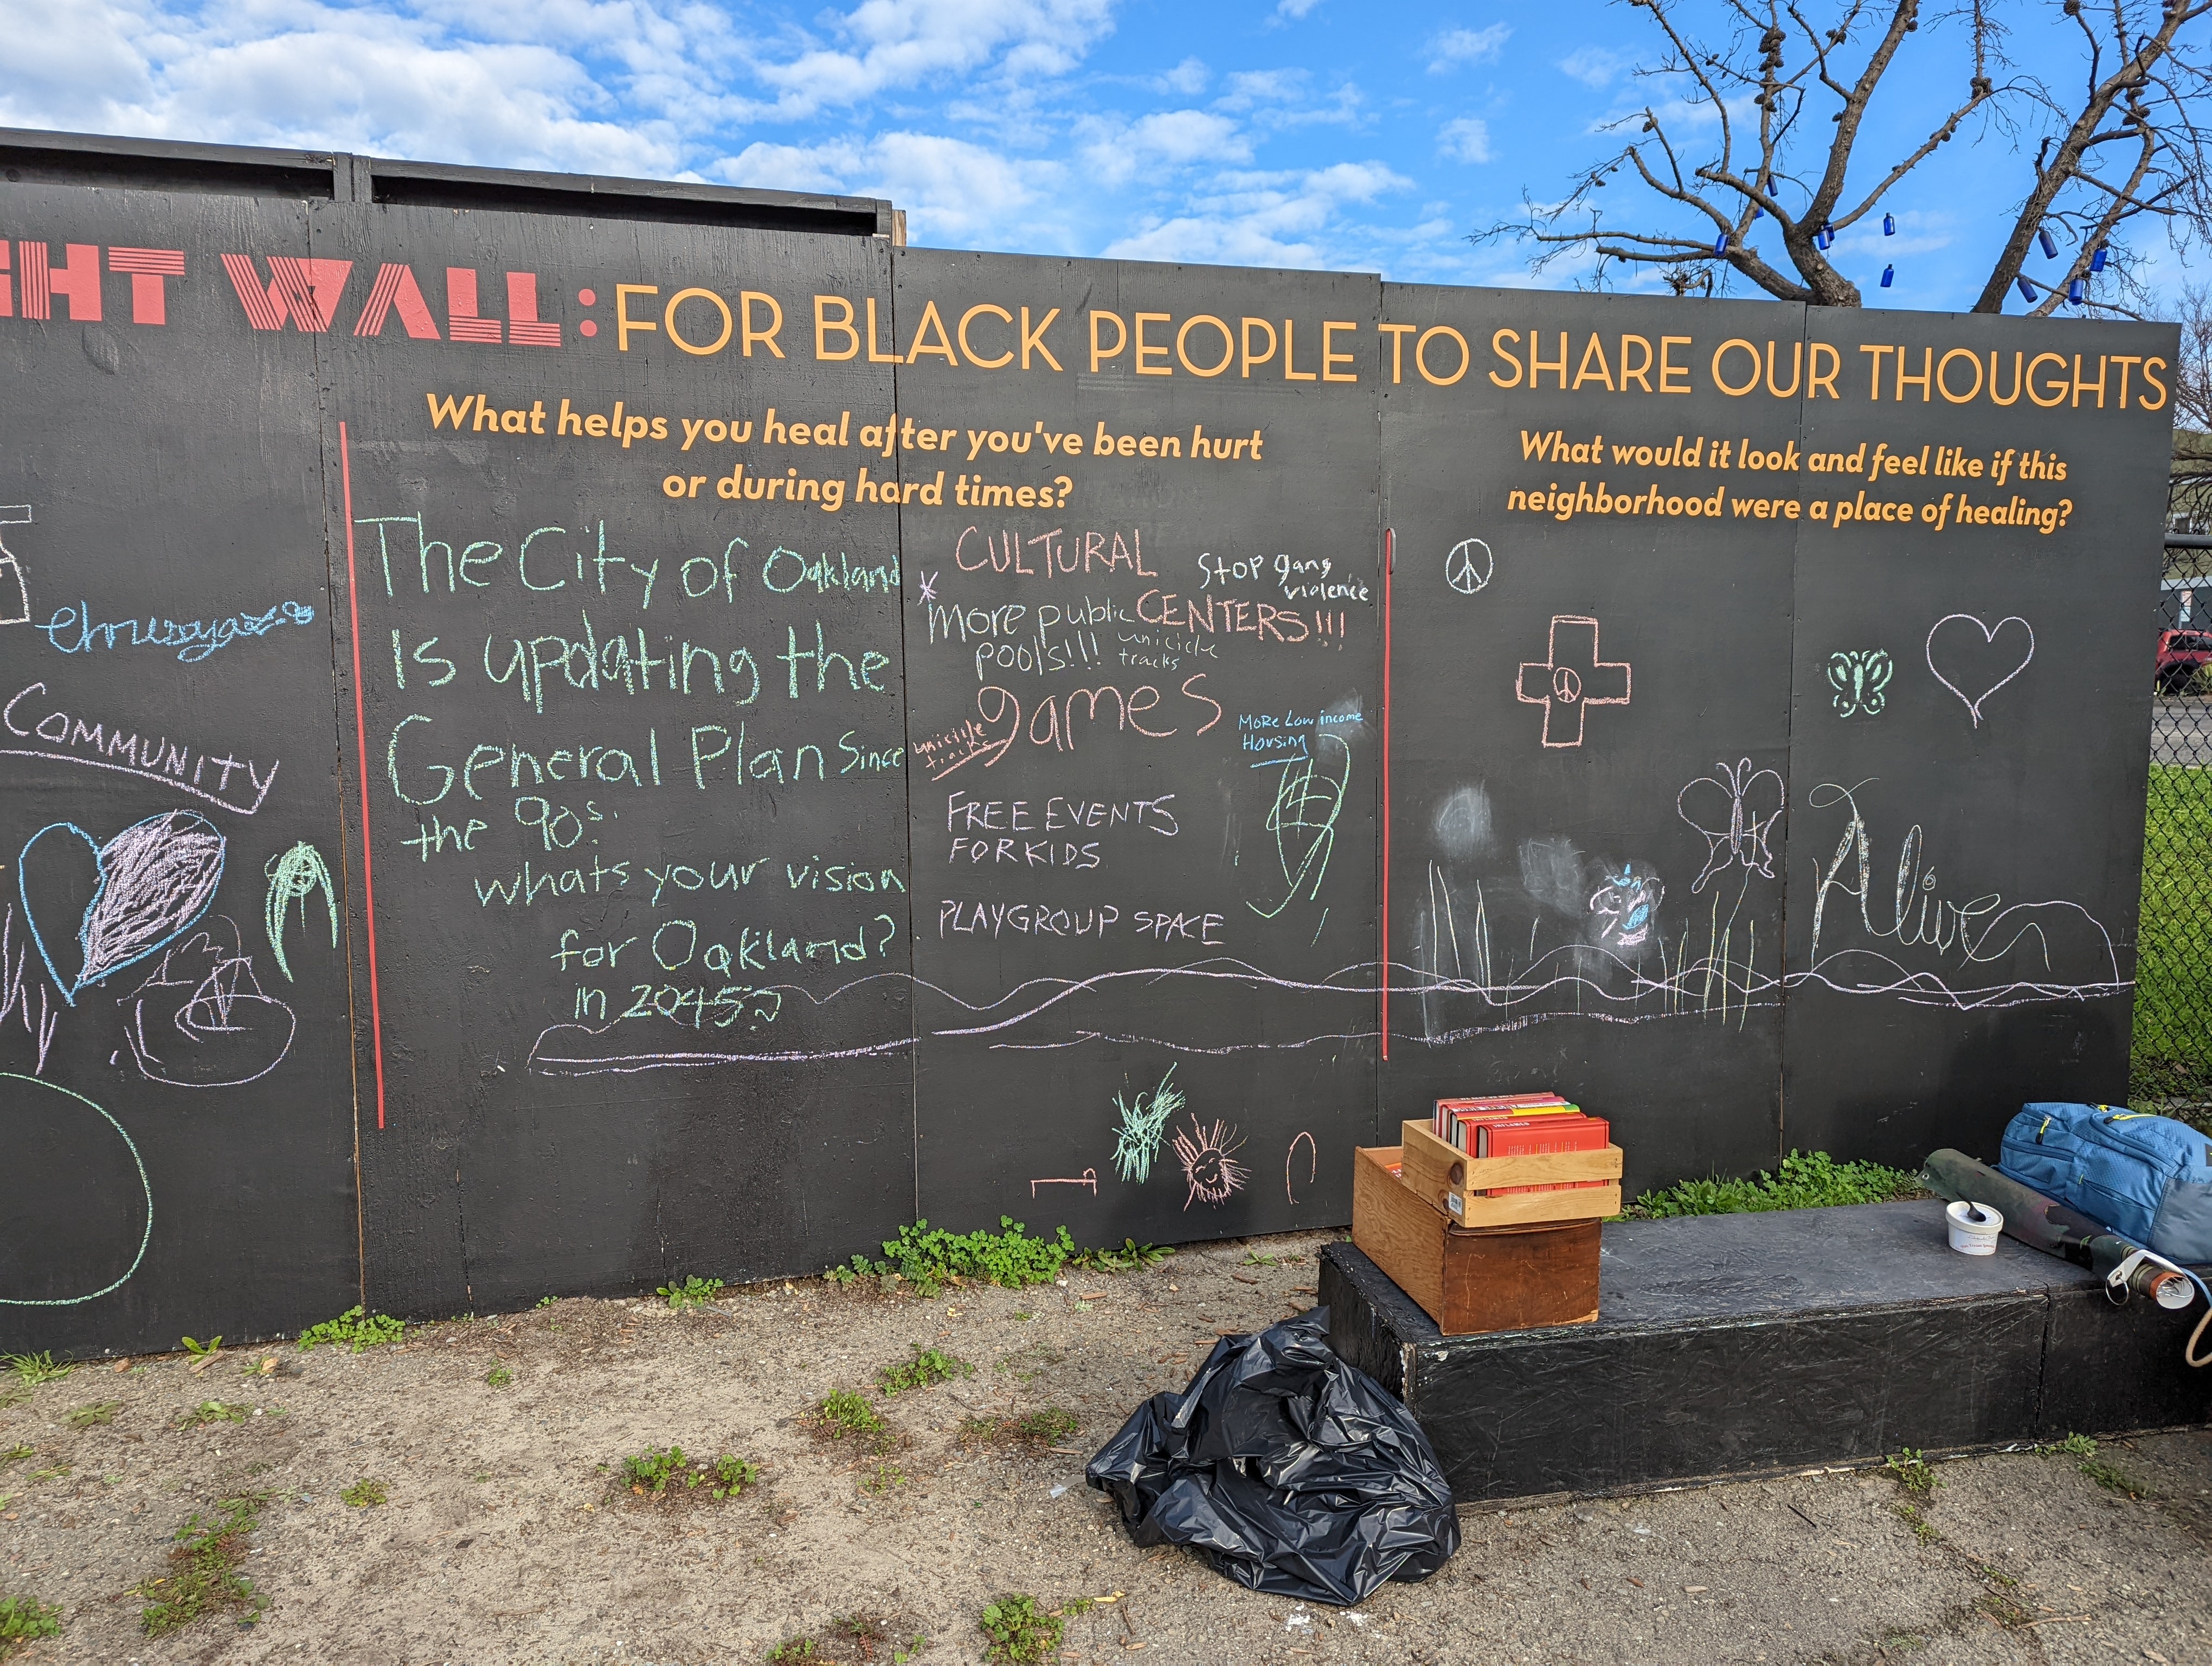 GHT WALL: FOR BLACK PEOPLE TO SHARE OUR THOUGHTS
What helps you heal after you've been hurt
or during hard times?
What would it look and feel like if this
neighborhood were a place of healing?
COMMUNITY
The City of Oakland
Is updating the
General Plan Since
the 90s.
whats your vision
for Oakland?
in 2045?
CULTURAL
CENTERS!!!
Stop gang
violence
* More public
pools!!!
unicicle
tracks
games
unicicle
tracks
MoRe Low income
Housing
FREE EVENTS
FOR KIDS
PLAYGROUP SPACE
Alive
INFLAMED